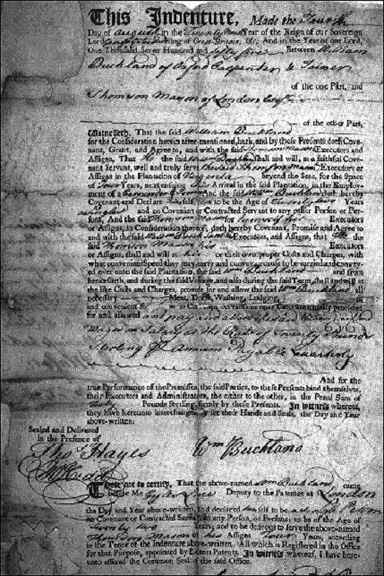 This Indenture, Made the Fourth
Day of August in the Twenty Ninth Year of the Reign of our Sovereign
Lord King of Great-Britain, &c. And in the Year of our Lord,
One Thousand Seven Hundred and fifty five Between William
Buckland of Oxford Carpenter & Joiner
of the one Part, and
Thomson Mason of London Esqr
of the other Part,
Witnesseth, That the said William Buckland
for the Consideration herein after-mentioned, hath, and by these Presents doth Cove-
nant, Grant, and Agree to, and with the said Thomson Mason Executors and
Assigns, That He the said Wm Buckland shall and will, as a faithful Cove-
nant Servant, well and truly serve Thomson Mason Executors or
Assigns in the Plantation of Virginia beyond the Seas, for the Space
of Four Years, next ensuing his Arrival in the said Plantation, in the Employ-
ment of a Carpenter & Joiner And the said Wm Buckland doth hereby
Covenant and Declare himself, now to be the Age of Twenty two Years
and no Covenant or Contracted Servant to any other Person or Per-
sons, And the said Thomson Mason for himself his Executors
or Assigns, in Consideration thereof, doth hereby Covenant, Promise and Agree to
and with the said Wm Buckland his Executors, and Assigns, that He the
said Thomson Mason his Executors
or Assigns, shall and will at his or their own proper Costs and Charges, with
what convenient Speed they may, carry and convey or cause to be carried and convey-
ed over unto the said Plantation, the said Wm Buckland and from
henceforth, and during the said Voyage, and also during the said Term, shall and will at
the like Costs and Charges, provide for and allow the said Wm Buckland all
necessary Meat, Drink, Washing, Lodging,
and convenient for
for and allowed and pay and
Wages or Salary at the Rate of Twenty Pounds
Sterling Per annum Payable Quarterly
And for the
true Performance of the Premisses, the said Parties, to these Presents bind themselves,
their Executors and Administrators, the either to the other, in the Penal Sum of
Pounds Sterling, firmly by these Presents. In witness whereof,
they have hereunto interchangeably set their Hands and Seals, the Day and Year
above-written.
Sealed and Delivered
in the Presence of
Tho Hayes
Wm Buckland
These are to certify, That the above-named Wm Buckland came
before Me Deputy to the Patentee at London
the Day and Year above-written, and declared himself to be a
no Covenant or Contracted Servant to any Person, or Persons; to be of the Age of
Twenty two Years; and to be desirous to serve the above-named
Thomson Mason or his Assigns Four Years, according
to the Tenor of the Indenture above-written. All which is Registered in the Office
for that Purpose, appointed by Letters Patents. In witness whereof, I have here-
unto affixed the Common Seal of the said Office.